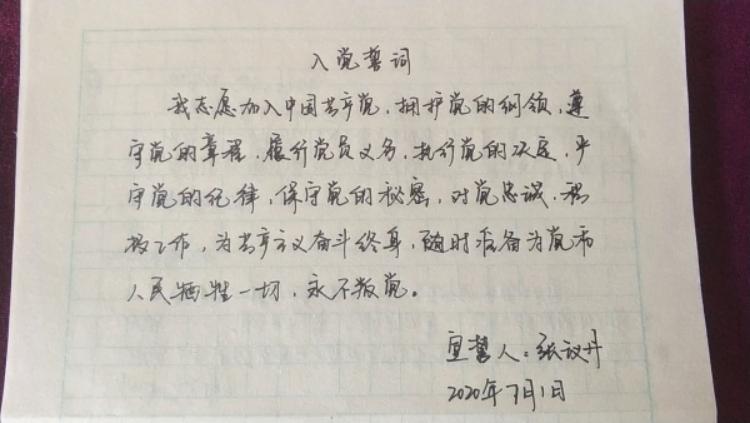 入党誓词
我志愿加入中国共产党,拥护党的纲领,遵
守党的章程,履行党员义务,执行党的决定,严
守党的纪律,保守党的秘密,对党忠诚,积
极工作,为共产主义奋斗终身,随时准备为党和
人民牺牲一切,永不叛党。
宣誓人:张议丹
2020年7月1日